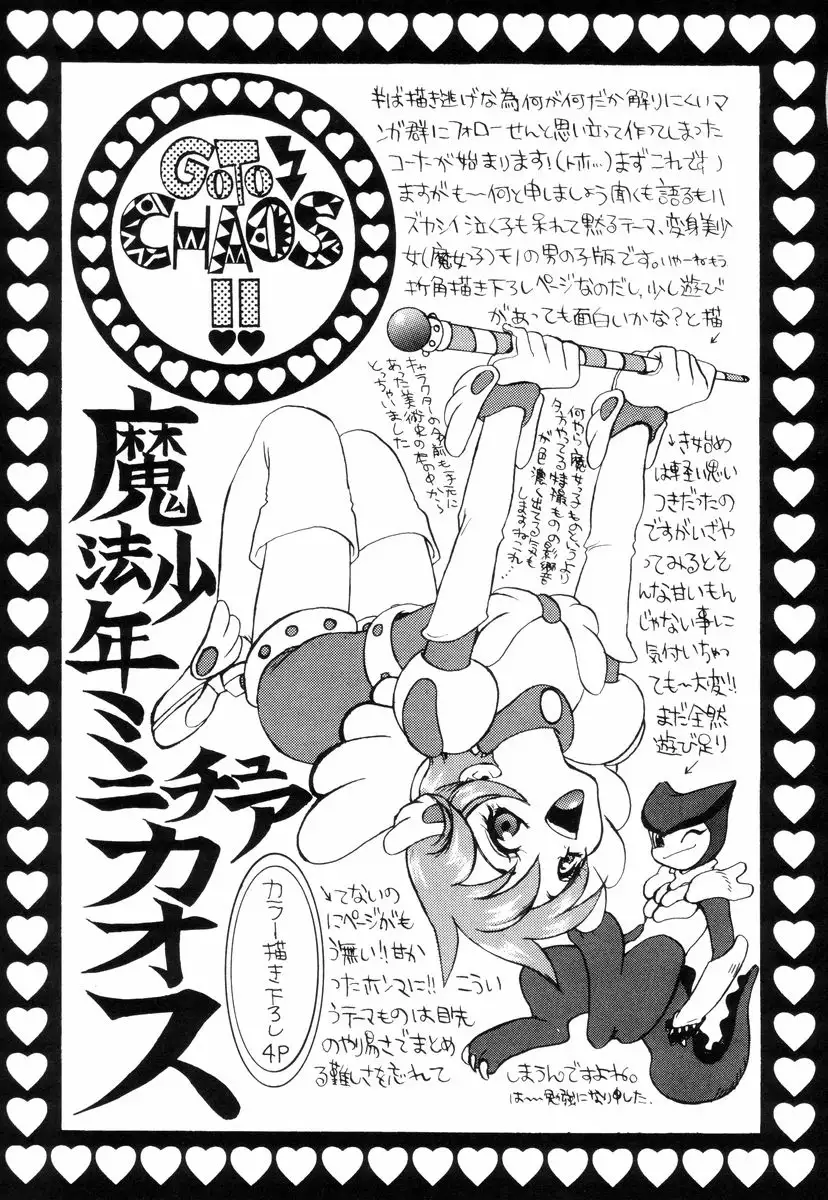 GOTO
CHAOS
!!
半ば描き逃げな為何が何だか解りにくいマ
ンガ群にフォローせんと思い立って作ってしまった
コーナーが始まります!(トホ…)まずこれです
ますがも〜何と申しましょう聞くも語るもハ
ズカシイ泣く子も呆れて黙るテーマ、変身美少
女(魔女っ子)モノの男の子版です。いやーねもう
折角描き下ろしページなのだし、少し遊び
があっても面白いかな?と描
き始め
は軽い思い
つきだったの
ですがいざや
ってみるとそ
んな甘いもん
じゃない事に
気付いちゃっ
ても〜大変!!
まだ全然
遊び足り
てないの
にページがも
う無い!!甘か
ったホンマに!!こうい
うテーマものは目先
のやり易さでまとめ
る難しさを忘れて
しまうんですよね。
は〜勉強になり申した.
何やら魔女っ子ものというより
夕方やってる特撮ものの影響
が色濃く出てる気も
しますねこれ…
キャラクターの名前も手元に
あった美術史の本の中から
とっちゃいました
魔法少年ミニチュアカオス
カラー描き下ろし
4P